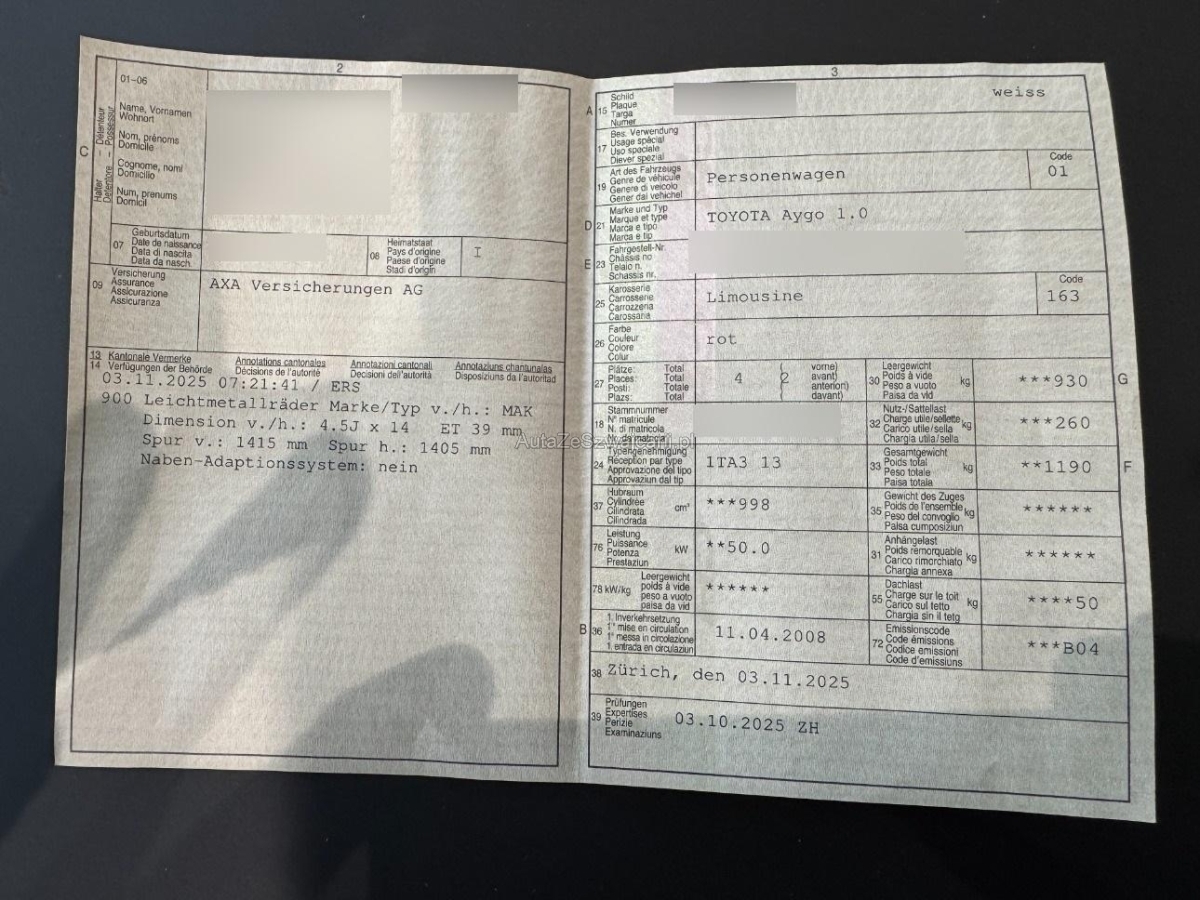 2
01-06
Halter – Détenteur
Detentore – Possessur
C
Name, Vornamen
Wohnort
Nom, prénoms
Domicile
Cognome, nomi
Domicilio
Num, prenums
Domicil
07
Geburtsdatum
Date de naissance
Data di nascita
Data da nasch.
08
Heimatstaat
Pays d'origine
Paese d'origine
Stadi d'origin
I
09
Versicherung
Assurance
Assicurazione
Assicuranza
AXA Versicherungen AG
13 Kantonale Vermerke Annotations cantonales Annotazioni cantonali Annotaziuns chantunalas
14 Verfügungen der Behörde Décisions de l'autorité Decisioni dell'autorità Disposiziuns da l'autoritad
03.11.2025 07:21:41 / ERS
900 Leichtmetallräder Marke/Typ v./h.: MAK
Dimension v./h.: 4.5J x 14 ET 39 mm
Spur v.: 1415 mm Spur h.: 1405 mm
Naben-Adaptionssystem: nein
AutaZeSzwajcarii.pl
3
A 15
Schild
Plaque
Targa
Numer
weiss
17
Bes. Verwendung
Usage spécial
Uso speciale
Diever spezial
19
Art des Fahrzeugs
Genre de véhicule
Genere di veicolo
Gener dal vehichel
Personenwagen
Code
01
D 21
Marke und Typ
Marque et type
Marca e tipo
Marca e tip
TOYOTA Aygo 1.0
E 23
Fahrgestell-Nr.
Châssis no
Telaio n.
Schassis nr.
25
Karosserie
Carrosserie
Carrozzeria
Carossaria
Limousine
Code
163
26
Farbe
Couleur
Colore
Colur
rot
27
Plätze: Total
Places: Total
Posti: Totale
Plazs: Total
4
( 2
vorne)
avant)
anteriori)
davant)
30
Leergewicht
Poids à vide
Peso a vuoto
Paisa da vid
kg
***930
G
18
Stammnummer
N° matricule
N. di matricola
Nr. da matricla
32
Nutz-/Sattellast
Charge utile/sellette
Carico utile/sella
Chargia utila/sella
kg
***260
24
Typengenehmigung
Réception par type
Approvazione del tipo
Approvaziun dal tip
1TA3 13
33
Gesamtgewicht
Poids total
Peso totale
Paisa totala
kg
**1190
F
37
Hubraum
Cylindrée
Cilindrata
Cilindrada
cm³
***998
35
Gewicht des Zuges
Poids de l'ensemble
Peso del convoglio
Paisa cumposiziun
kg
******
76
Leistung
Puissance
Potenza
Prestaziun
kW
**50.0
31
Anhängelast
Poids remorquable
Carico rimorchiato
Chargia annexa
kg
******
78 kW/kg
Leergewicht
poids à vide
peso a vuoto
paisa da vid
******
55
Dachlast
Charge sur le toit
Carico sul tetto
Chargia sin il tetg
kg
****50
B 36
1. Inverkehrsetzung
1re mise en circulation
1a messa in circolazione
1. entrada en circulaziun
11.04.2008
72
Emissionscode
Code émissions
Codice emissioni
Code d'emissiuns
***B04
38 Zürich, den 03.11.2025
39
Prüfungen
Expertises
Perizie
Examinaziuns
03.10.2025 ZH